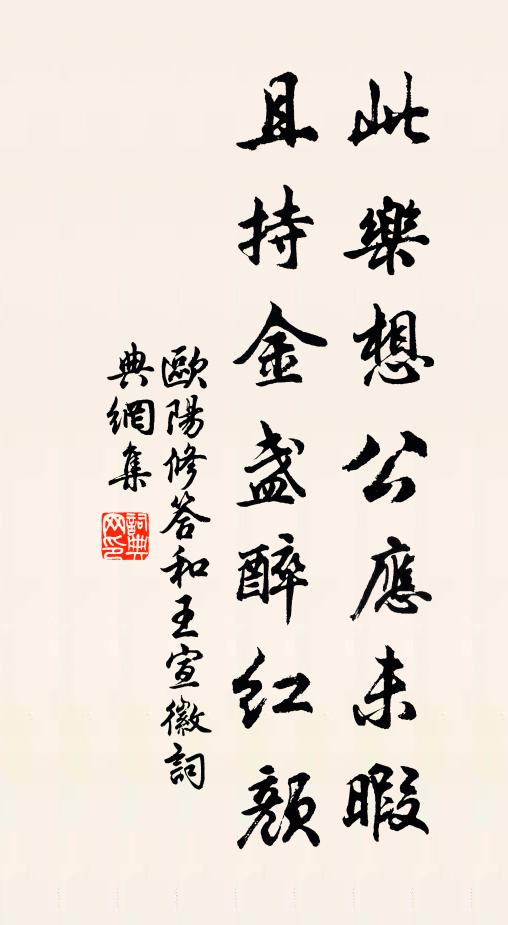 此樂想公應未暇
且持金盏醉紅顏
歐陽修答和王宣徽詞
典網集
詞典
网印